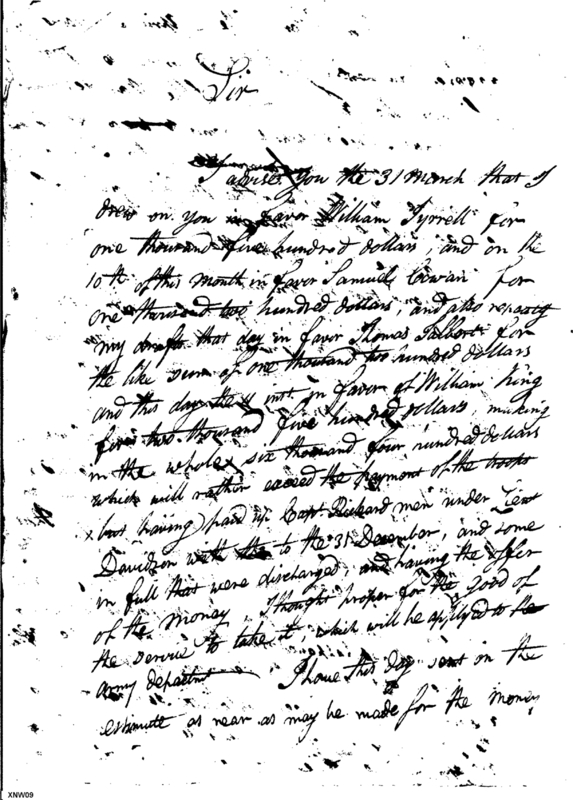 Sir
I advised you the 31 March that I
drew on you in favor William Tyrrell for
one thousand five hundred dollars, and on the
10th of this month in favor Samuel Cowan for
one thousand two hundred dollars, and also
my draft that day in favor Thomas Talbert for
the like sum of one thousand two hundred dollars
and this day the inst. in favor of William King
for two thousand five hundred dollars, making
in the whole six thousand four hundred dollars
which will rather exceed the payment of the troops
but having paid up Capt Rickard men under Lieut
Davidson to the 31 December, and some
in full that were discharged, and having the offer
of the money I thought proper for the good of
the service to take it, which will be applyed to the
army departmt I have this day sent on the
estimate as near as may be made for the money
XNW09